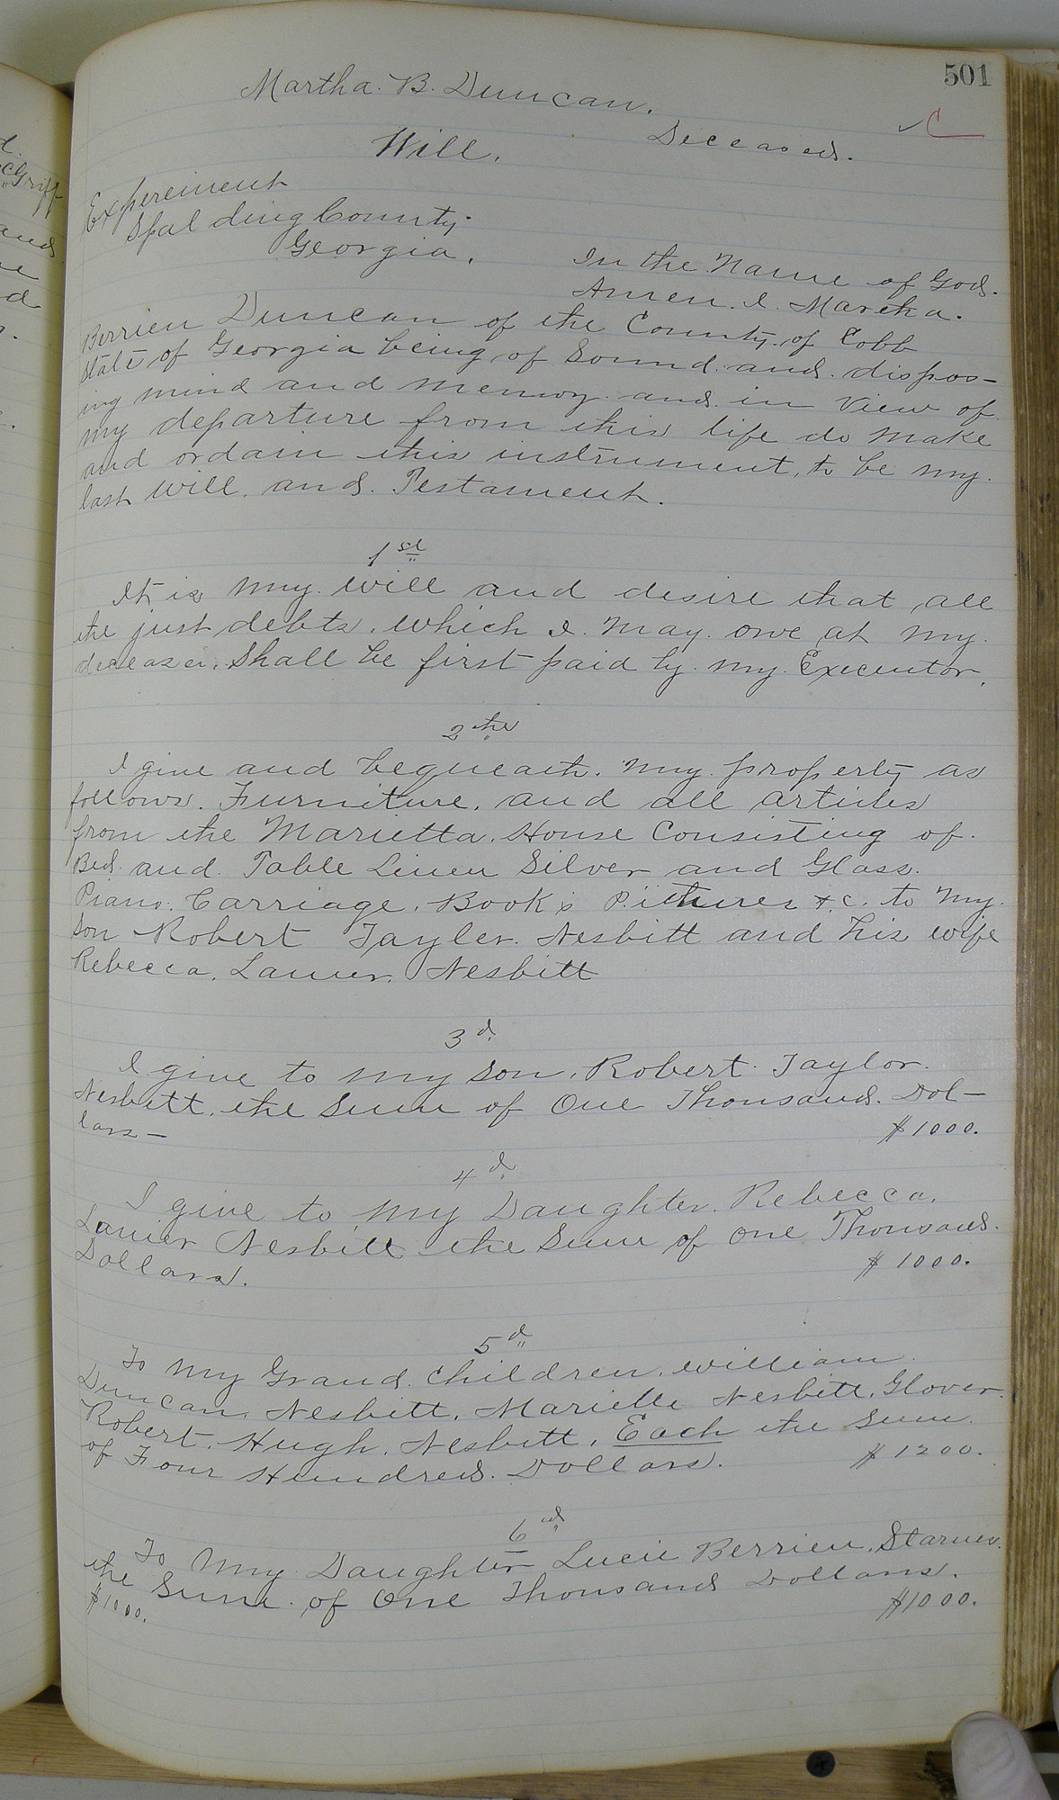 501
Martha. B. Duncan.
Deceased.
Will.
Expereiment
Spalding County
Georgia.
In the Name of God.
Amen. I. Martha.
Berrien Duncan of the County of Cobb
State of Georgia being of Sound and dispos-
ing mind and memory and in view of
my departure from this life do make
and ordain this instrument, to be my
last will. and. Testament.
1st
It is my will and desire that all
the just debts. which I. may. owe at my.
decease. Shall be first paid by my Executor.
2the
I give and bequeath. my property as
follows. Furniture. and all articles
from the Marietta. House Consisting of.
Bed. and. Table Linen Silver and Glass.
Piano. Carriage. Book's Pictures &.c. to my.
Son Robert Tayler. Nesbitt and his wife
Rebecca. Lanier. Nesbitt
3d.
I give to my Son. Robert. Taylor.
Nesbitt. the Sum of One Thousand. Dol-
lars-
$1000.
4d.
I give to my Daughter. Rebecca.
Lanier Nesbitt the Sum of One Thousand.
Dollars.
$1000.
5d
To my Grand. Children. William.
Duncan. Nesbitt. Marielle Nesbitt. Glover.
Robert. Hugh. Nesbitt. Each the Sum
of Four Hundred. Dollars.
$1200.
6th
To My Daughter Lucie Berrien. Starnes.
the Sum. of One Thousand Dollars.
$1000.
$1000.